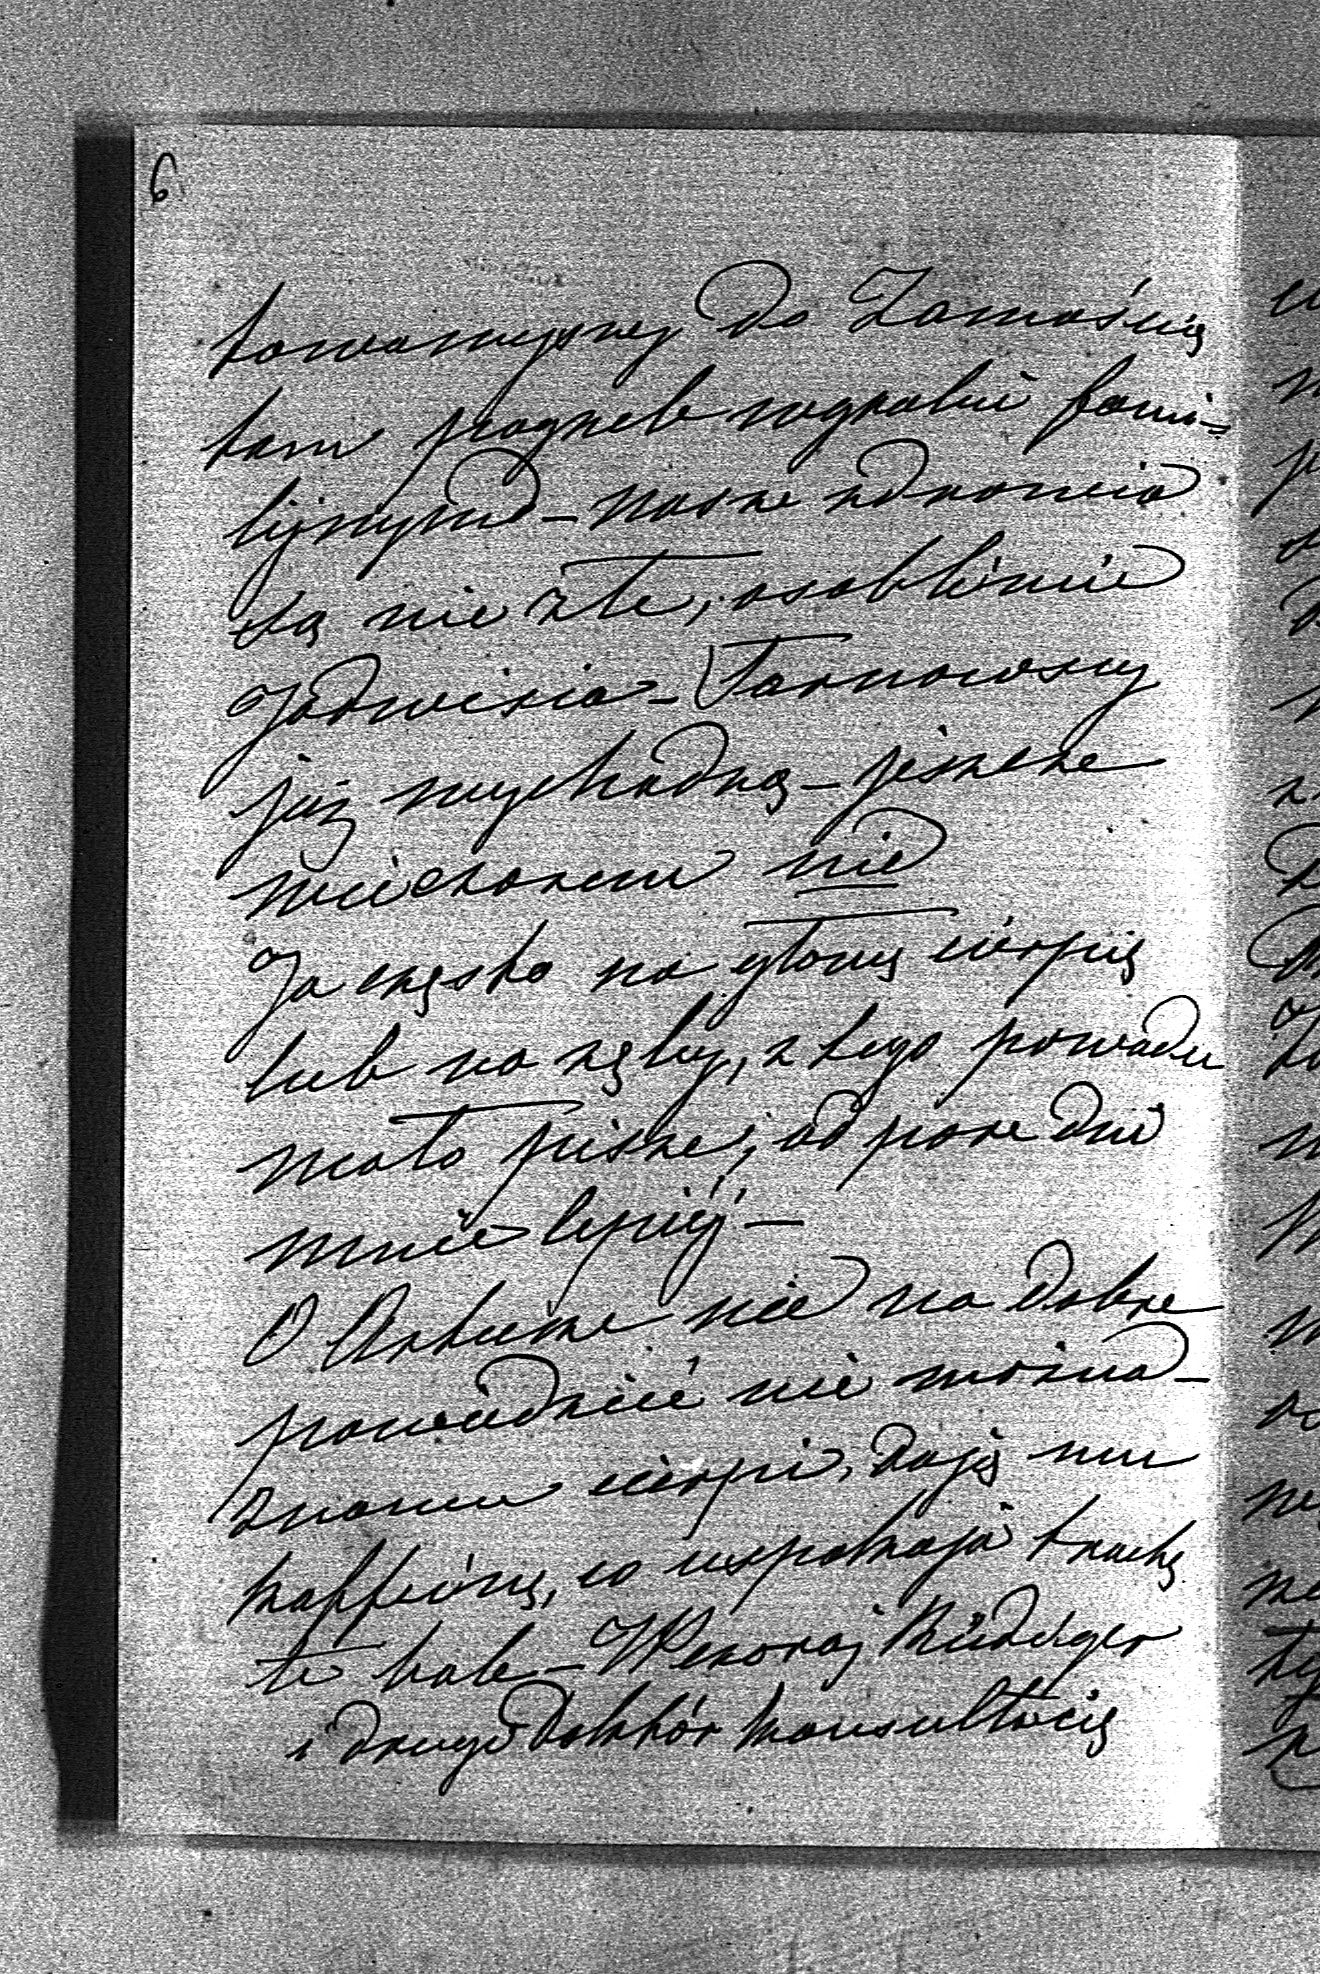 6
towarzyszy do Zamościa
tam pogrzeb w grobie fami=
lijnym – nasze zdrowia
są nie złe, osobliwie
Jadwisia – Tarnowscy
już wychodzą – jeszcze
wieczorem nie
Ja często na głowę cierpię
lub na zęby, z tego powodu
mało piszę, od parę dni
mnie lepiéj –
O Arturze nic na dobre
powiedzieć nie można –
znowu cierpi, dają mu
kaffeinę, co uspokaja trochę
te bole – Wczoraj Rüdiger
i drugi doktór konsultacię